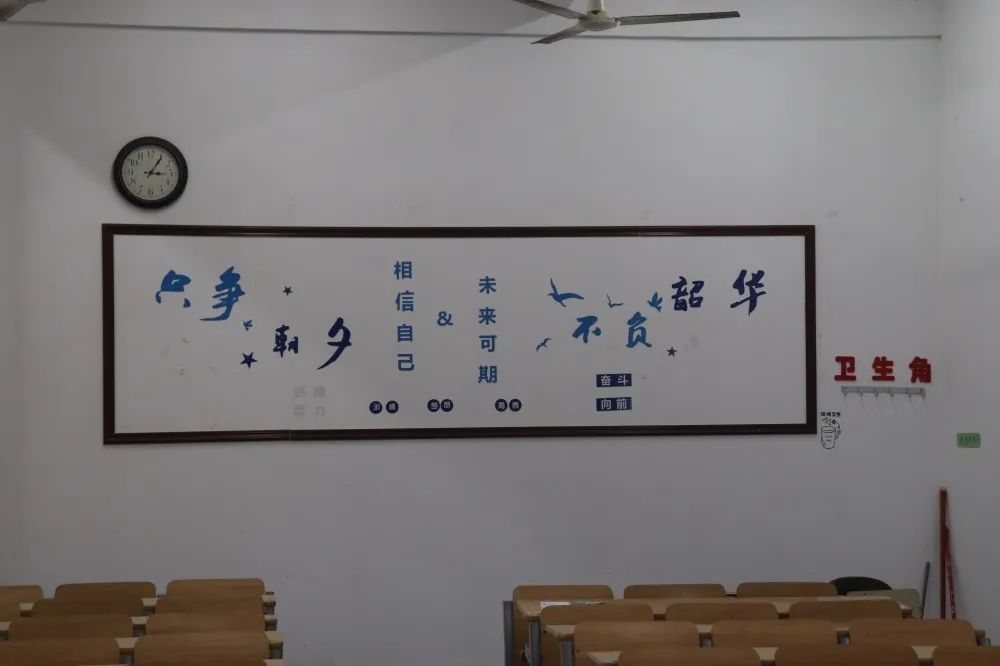 只争
朝夕
相信自己
&
未来可期
不负
韶华
奋斗
向前
卫生角